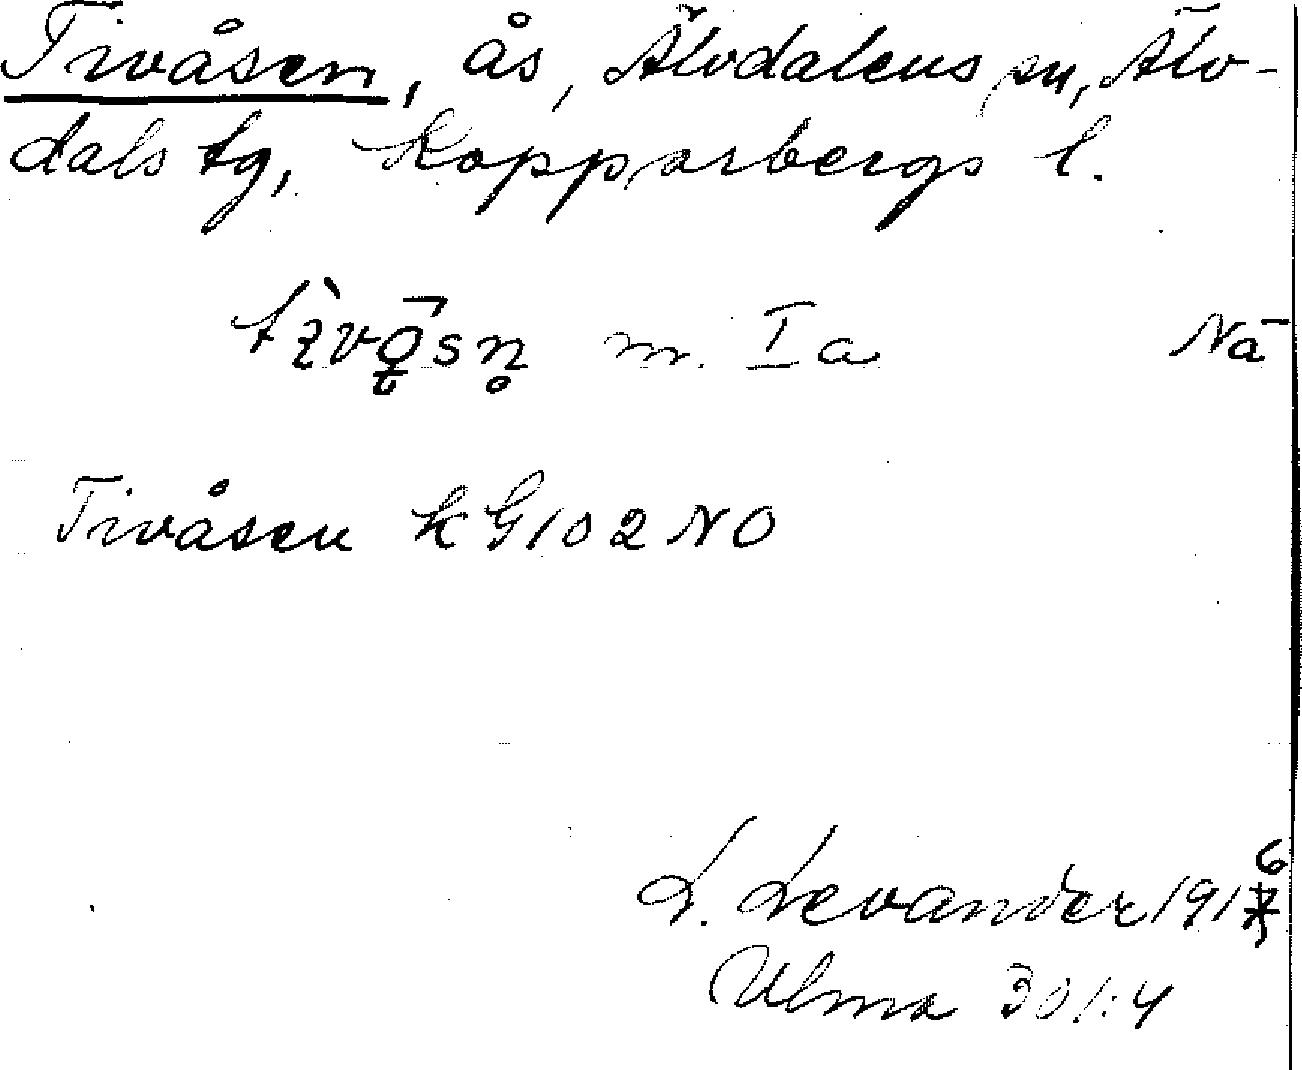 Tivåsen, ås, Älvdalens sn, Älv-
dals tg, Kopparbergs l.
m. Ia Nä
Tivåsen k G102 NO
L. Levander 1916
Ulma 301:4